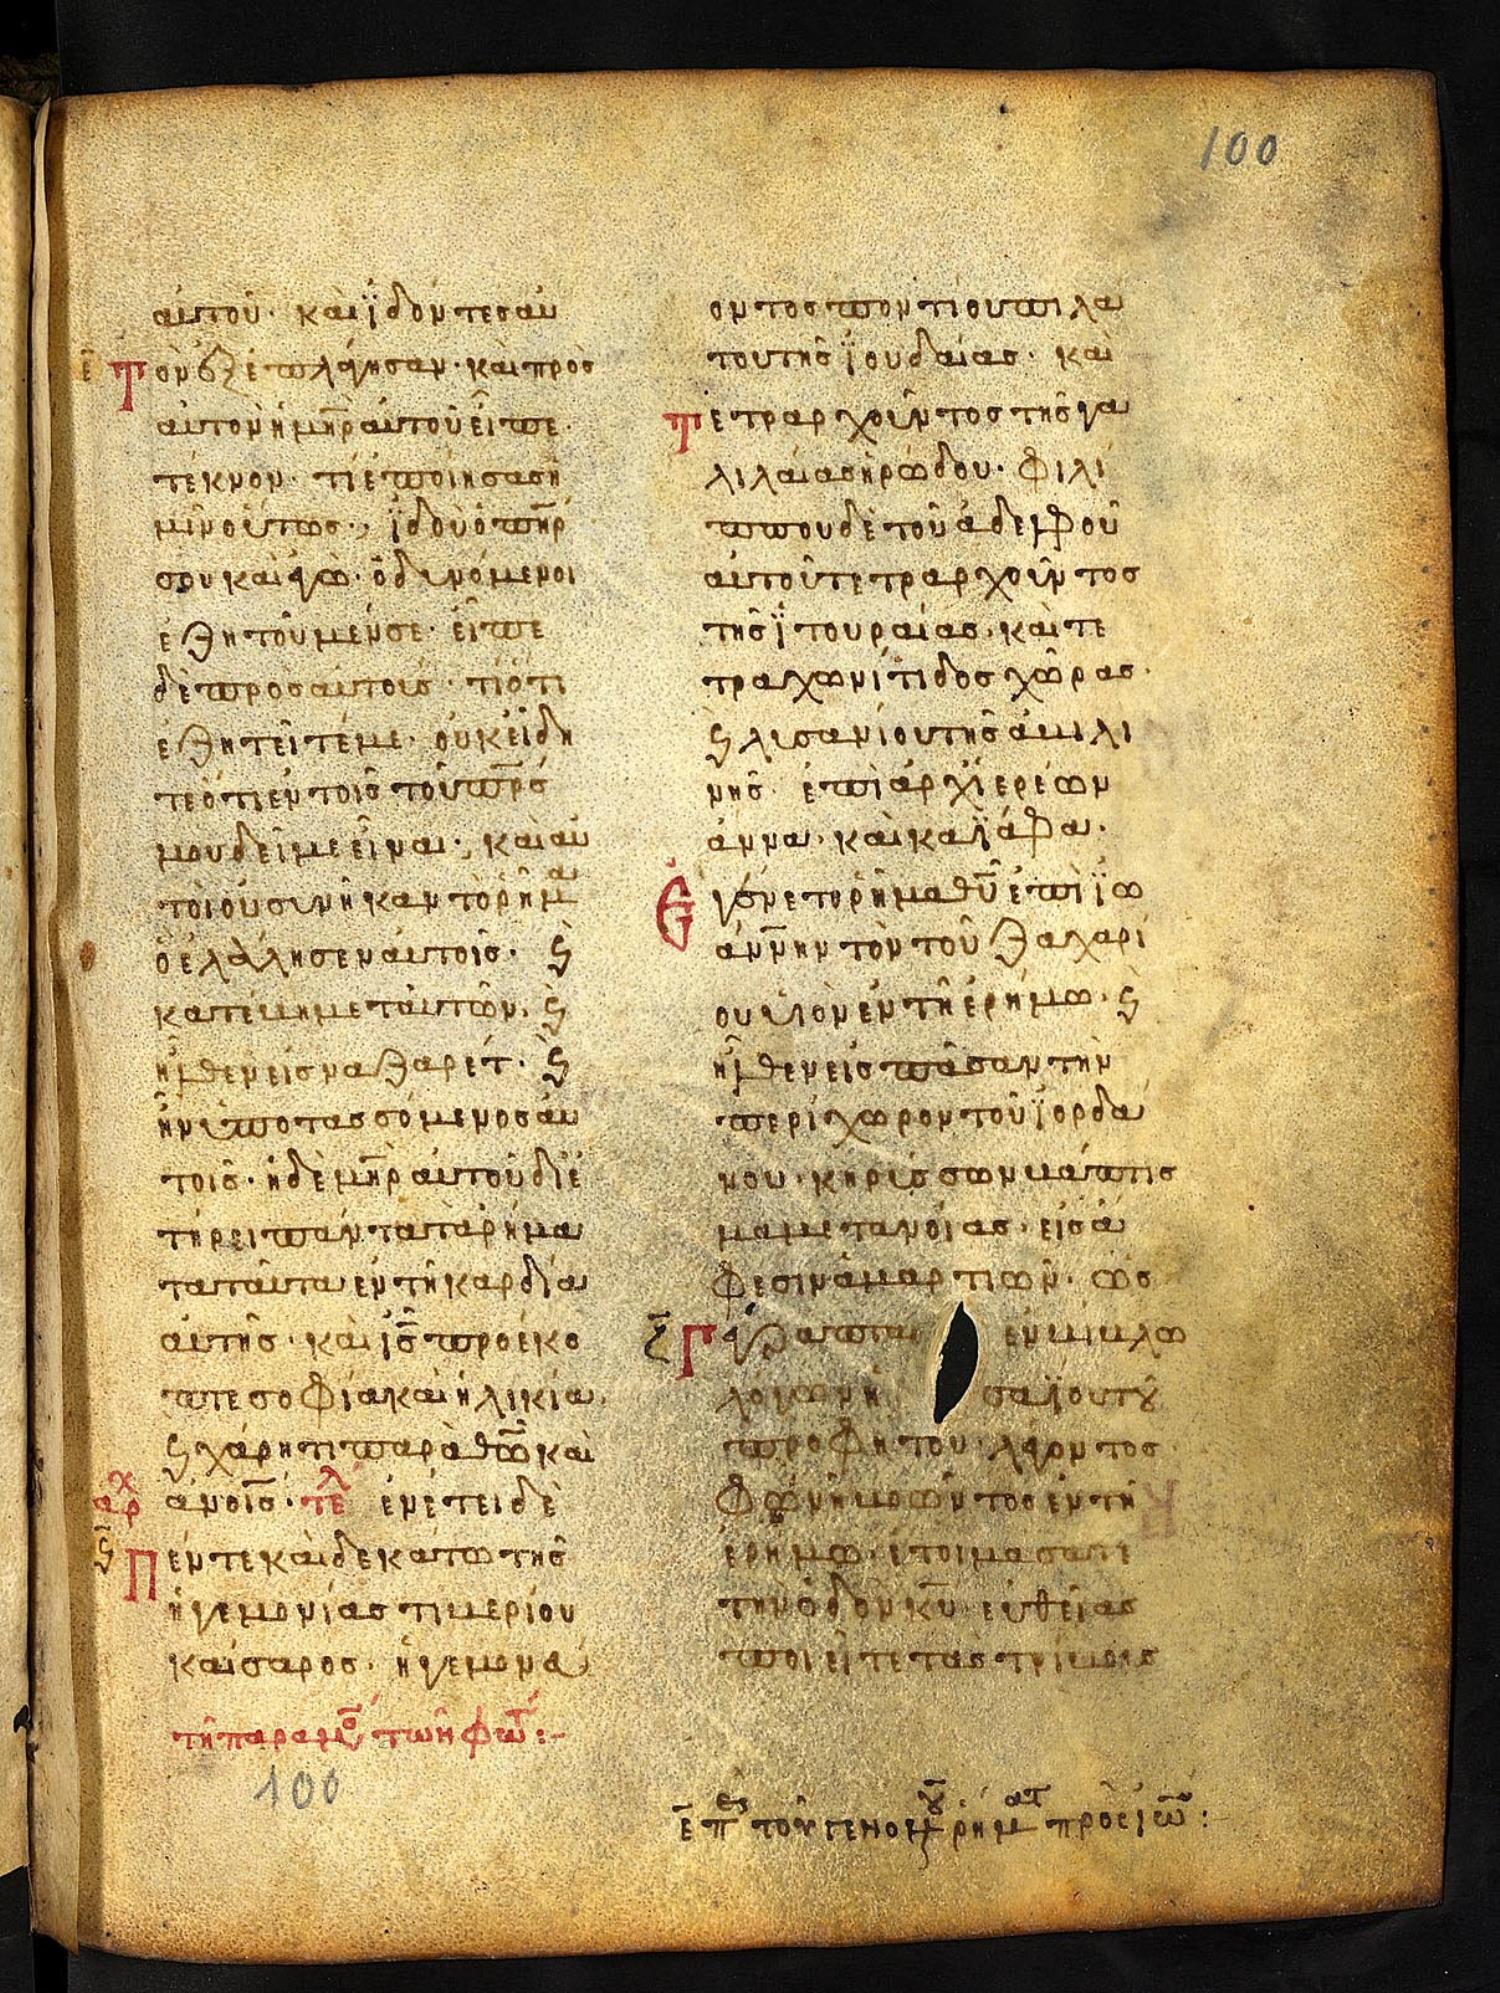 100
αυτοῦ· καὶ ϊδόντες αὐ
ε̄ Τὸν ἐξεπλάγησαν· καὶ πρὸς
αὐτὸν ἡ μη̄ρ αὐτοῦ εἶπε·
τέκνον· τί ἐποίησας ἡ
μῖν οὕτως·, ϊδοὺ ὁ πη̄ρ
σου κἀγὼ· ὀδυνόμενοι
ἐζητοῦμέν σε· εἶπε
δὲ πρὸς αυτοὺς· τί ὅτι
ἐζητεῖτέ με· οὐκ εἴδη
τε ὅτι ἐν τοῖς τοῦ πρ̄ς
μου δεῖ με εἶναι·, καὶ αὐ
τοὶ οὐ συνῆκαν τὸ ῥῆμα
ὃ ἐλάλησεν αὐτοῖς· ϛ
κατέβη μετ αὐτῶν· ϛ
ἦλθεν εἰς ναζαρέτ· ϛ
ἦν ὑποτασσόμενος αὐ
τοῖς· ἡ δὲ μη̄ρ αὐτοῦ διε
τήρει πάντα τὰ ῥήμα
τα ταῦτα ἐν τῆ καρδία
αὐτῆς· καὶ ι̅ς̅ προέκο
πτε σοφία καὶ ἡλικία·
ϛ χάρητι παρὰ θω̄ καὶ
αρχ ἀν̅οις· τελ ἐν ἔτει δὲ
ϛ̄ Πεντεκαιδεκάτω τῆς
ἡγεμονίας τιβερίου
καίσαρος· ἡγεμονεύ
τῆ παραμο τῶν φωτ:-
100
οντος ποντίου πιλά
του τῆς ϊουδαίας· καὶ
Τετραρχοῦντος τῆς γα
λιλαίας ἡρώδου· φιλί
ππου δὲ τοῦ ἀδελφοῦ
αὐτοῦ τετραρχοῦντος
τῆς ϊτουραίας· καὶ τε
τραχωνίτιδος χώρας·
ϛ λυσανίου τῆς ἀβιλι
νῆς· ἐπὶ ἀρχϊερέων
ἄννα· καὶ καϊάφα·
Ἐγένετο ῥῆμα θῡ ἐπὶ ϊω
άννην τὸν τοῦ ζαχαρί
ου υἱὸν ἐν τῆ ἐρήμω· ϛ
ἦλθεν εἰς πᾶσαν τὴν
περίχωρον τοῦ ϊορδά
νου· κηρύσσων βάπτισ
μα μετανοίας· εἰς ἄ
φεσιν ἁμαρτιῶν· ὡς
ζ̄ Γέγραπται ἐν βίβλω
λόγων ἡσαΐου τοῦ
προφήτου· λέγοντος·
Φωνὴ βοῶντος ἐν τῆ
ἐρήμω· ἑτοιμάσατε
τὴν ὁδὸν κῡ· εὐθείας
ποιεῖτε τὰς τρίβους